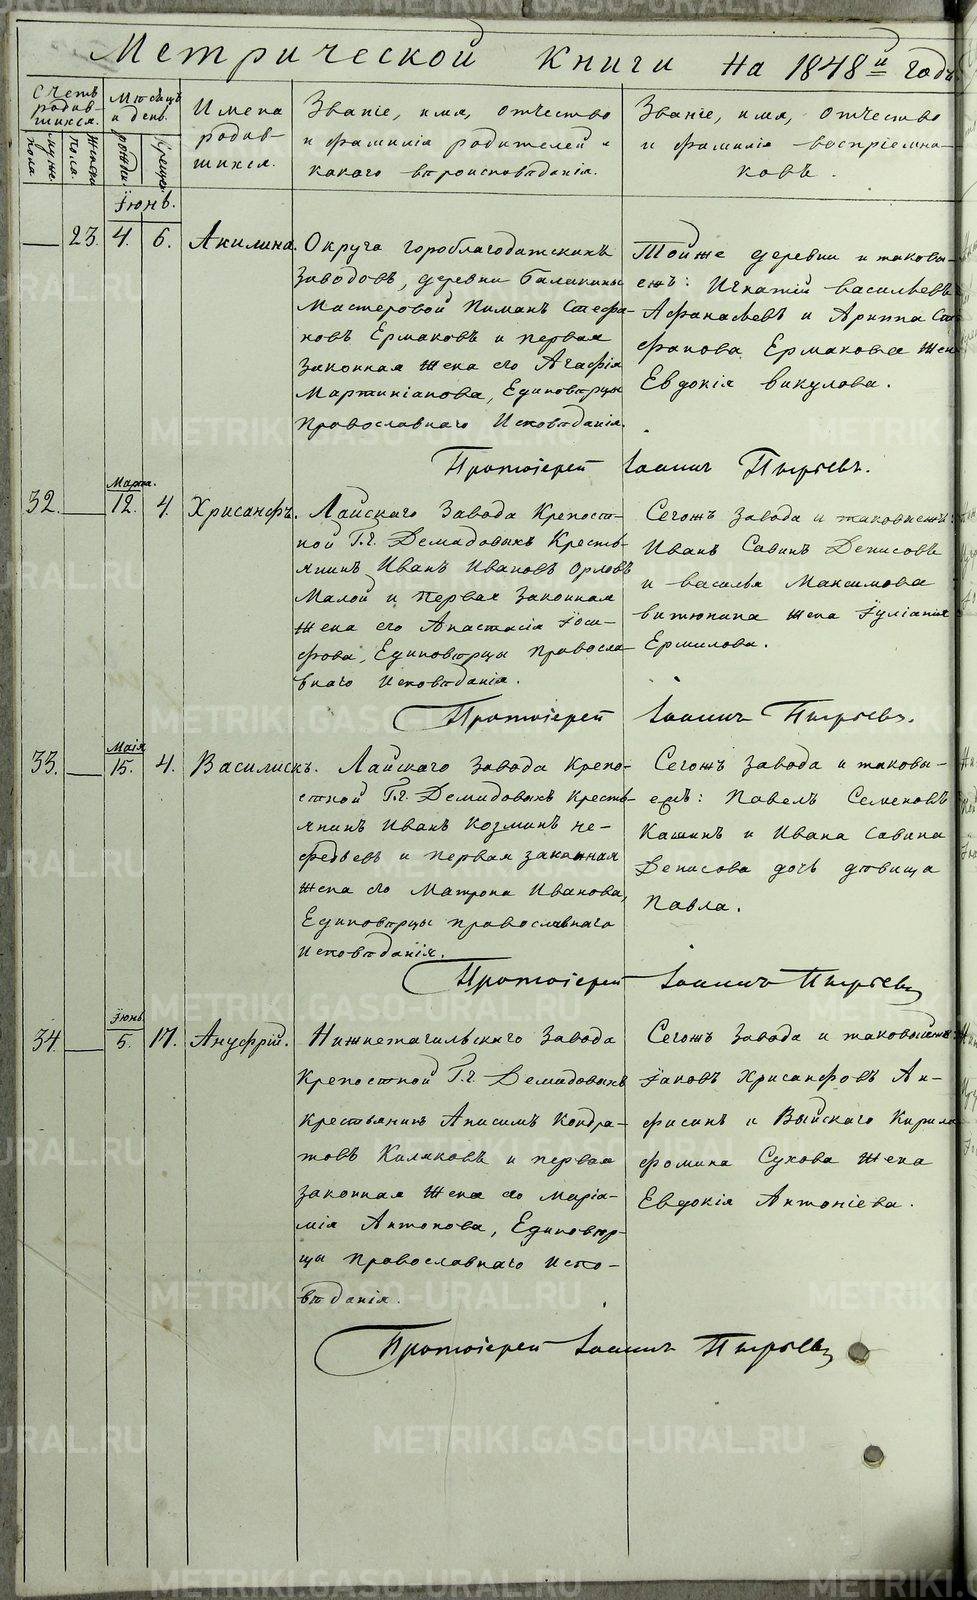 Метрической Книги на 1848й годъ
Счетъ родив-шихся.
Мѣсяцъ и день.
Имена родив-шихся.
Званіе, имя, отчество
и фамилія родителей и
какого вѣроисповѣданія.
Званіе, имя, отчество
и фамилія воспріемни-
ковъ.
муж. пола.
женск. пола.
рожден.
крещен.
Іюнь.
23. 4. 6. Акилина.
Округа гороблагодатскихъ
заводовъ, деревни Балакины
Мастеровой Пиманъ Стефа-
новъ Ермаковъ и первая
законная жена его Агафія
Мартиніанова, Единовѣрцы
Православнаго Исповѣданія.
Тойже деревни и таковы-
ежъ: Игнатій васильевъ
Афанасьевъ и Архипа Сте-
фанова Ермакова жена
Евдокія викулова.
Протоіерей Іоаннъ Пырьевъ.
Марта.
32. 12. 4. Хрисанфъ.
Лайскаго Завода Крепост-
ной Г.г. Демидовыхъ Кресть-
янинъ Иванъ Ивановъ Орловъ
Малой и Первая Законная
жена его Анастасія Іоси-
фова, Единовѣрцы правосла-
внаго исповѣданія.
Сегожъ завода и таковыежъ:
Иванъ Савинъ Денисовъ
и василья Максимова
витюнина жена Іуліанія
Ермилова.
Протоіерей Іоаннъ Пырьевъ.
Маія
33. 15. 4. Василискъ.
Лайскаго завода Крепо-
стной Г.г. Демидовыхъ Кресть-
янинъ Иванъ Козминъ Не-
федьевъ и первая законная
жена его Матрона Иванова,
Единовѣрцы православнаго
исповѣданія.
Сегожъ завода и таковы-
ежъ: Павелъ Семеновъ
Кашинъ и Ивана Савина
Денисова дочь дѣвица
Павла.
Протоіерей Іоаннъ Пырьевъ
Іюнь
34. 5. 17. Ануфрій.
Нижнетагильскаго завода
Крепостной Г.г. Демидовыхъ
крестьянинъ Анисимъ Кондра-
товъ Каляковъ и первая
законная жена его Маріа-
мія Антонова, Единовѣр-
цы православнаго испо-
вѣданія.
Сегожъ завода и таковыежъ:
Іаковъ Хрисанфовъ Ан-
фисинъ и Выйскаго Кирила
фомина Сухова жена
Евдокія Антоніева.
Протоіерей Іоаннъ Пырьевъ
METRIKI.GASO-URAL.RU